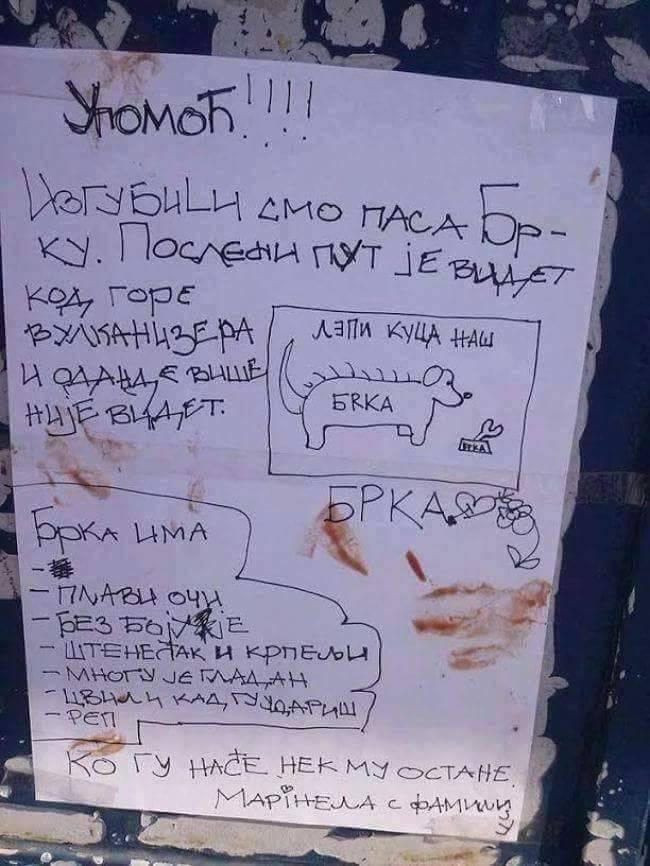 Упомоћ!!!!
Изгубили смо паса Бр-
ку. Послєдњи пут је видет
код горе
вулканизера
и одандє више
није видет.
Лэпи куца наш
БRKA
БРКА
БРКА
Брка има
- плави очи
- без боје
- штенећак и крпељи
- многу је гладан
- цвили кад гу удариш
- реп
Ко гу наће нек му остане.
Марінела с фамили